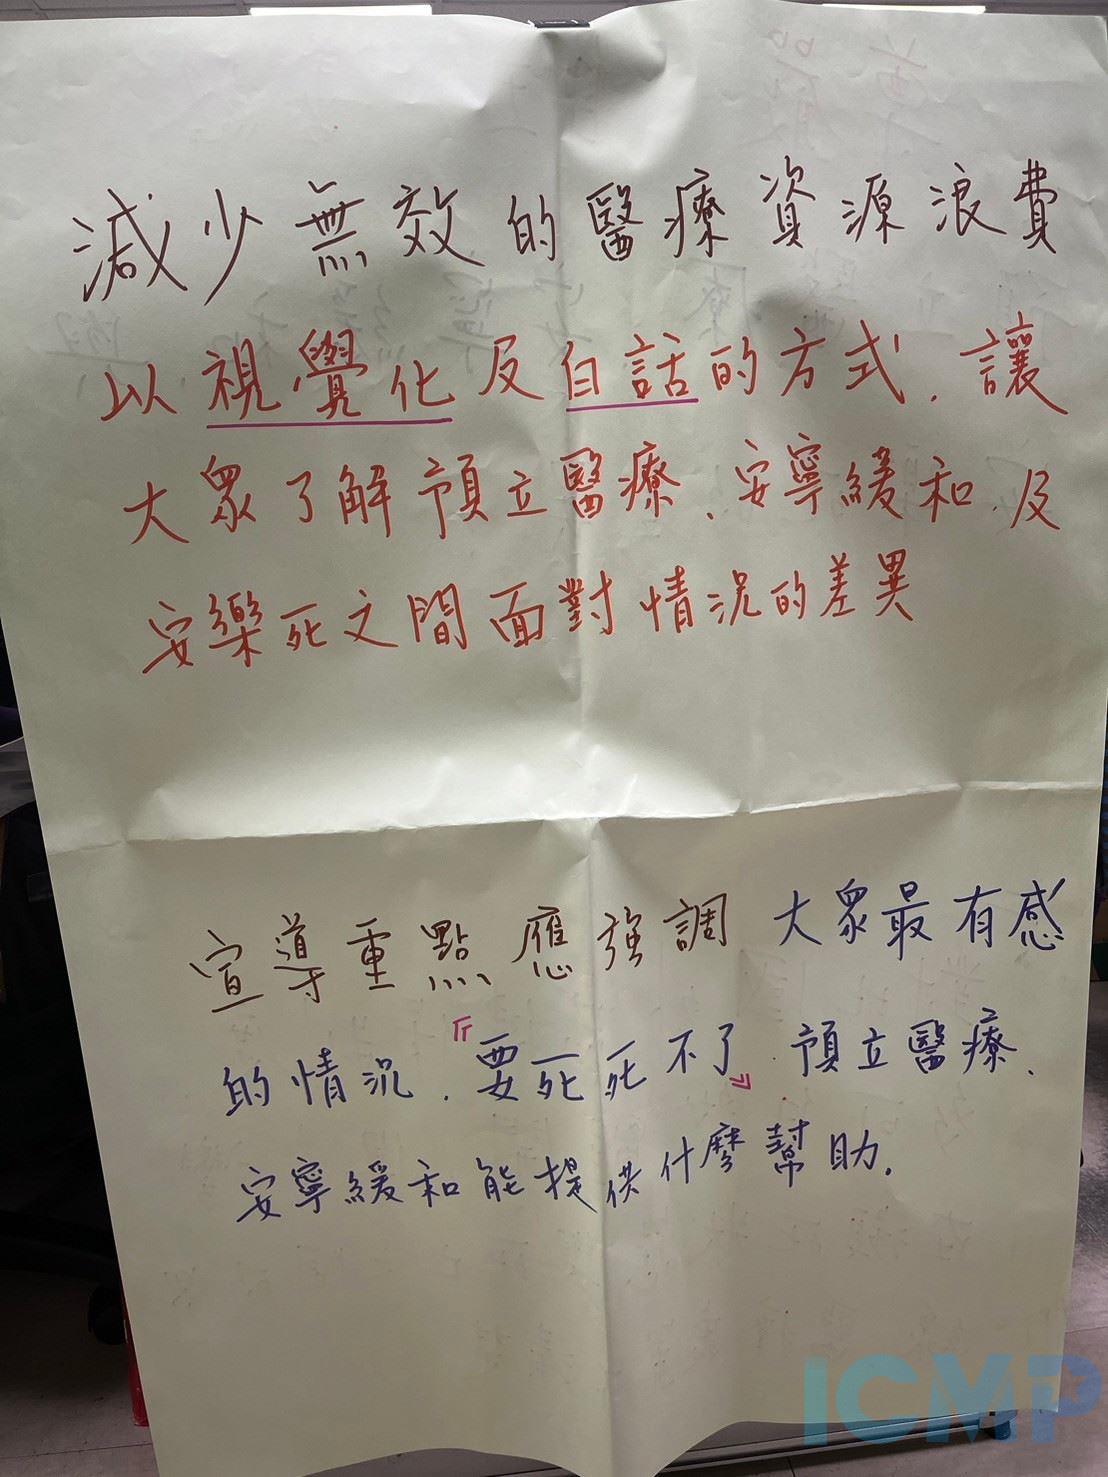 減少無效的醫療資源浪費
以視覺化及白話的方式，讓
大眾了解預立醫療、安寧緩和、及
安樂死之間面對情況的差異
宣導重點應強調 大眾最有感
的情況，『要死死不了』，預立醫療、
安寧緩和能提供什麼幫助。
ICMP